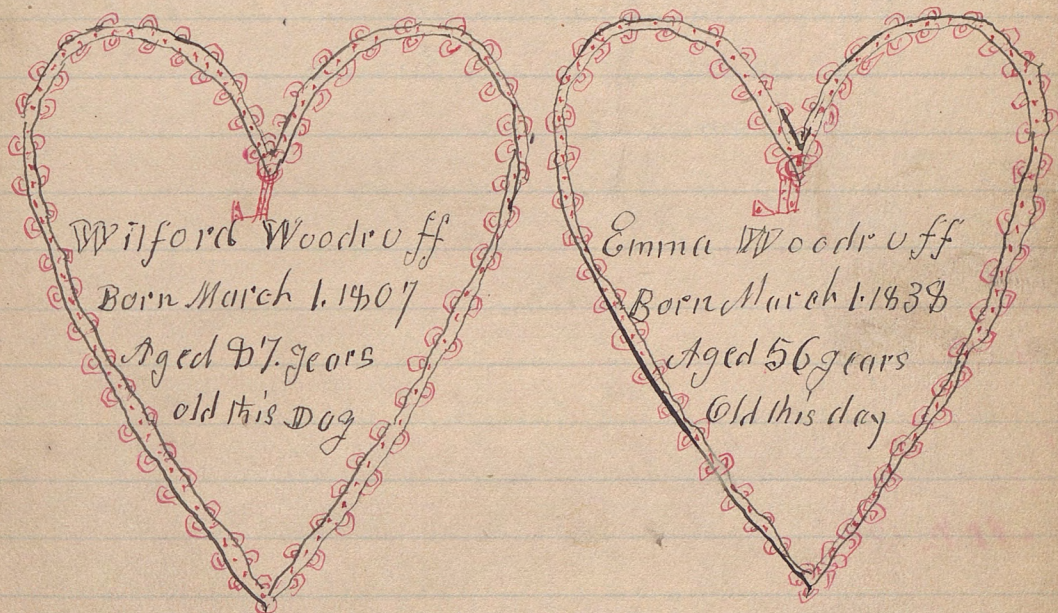 Wilford Woodruff
Born March 1. 1807
Aged 87. years
old this Day
Emma Woodruff
Born March 1. 1838
Aged 56 years
Old this day